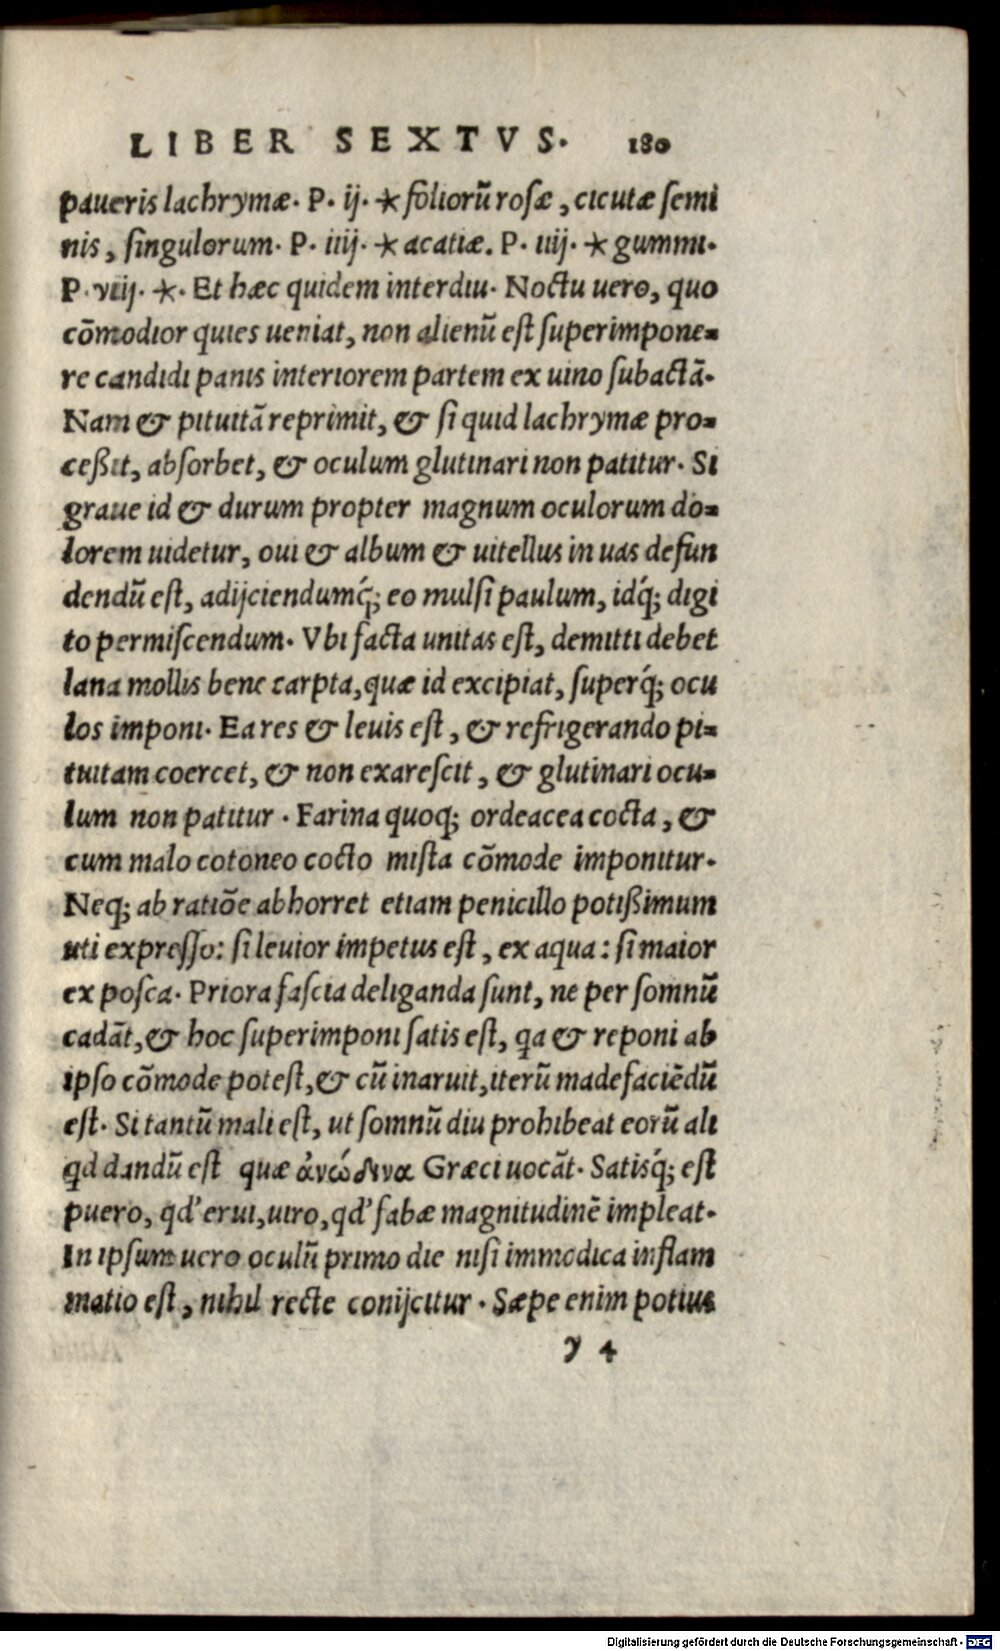 LIBER SEXTVS. 180
paueris lachrymæ. P. ij. * foliorũ rosæ, cicutæ semi
nis, singulorum. P. iiij. * acatiæ. P. iiij. * gummi.
P. viij. *. Et hæc quidem interdiu. Noctu uero, quo
cõmodior quies ueniat, non alienũ est superimpone=
re candidi panis interiorem partem ex uino subactã.
Nam & pituitã reprimit, & si quid lachrymæ pro=
ceßit, absorbet, & oculum glutinari non patitur. Si
graue id & durum propter magnum oculorum do=
lorem uidetur, oui & album & uitellus in uas defun
dendũ est, adijciendumq́; eo mulsi paulum, idq́; digi
to permiscendum. Vbi facta unitas est, demitti debet
lana mollis bene carpta, quæ id excipiat, superq́; ocu
los imponi. Ea res & leuis est, & refrigerando pi=
tuitam coercet, & non exarescit, & glutinari ocu=
lum non patitur. Farina quoq; ordeacea cocta, &
cum malo cotoneo cocto mista cõmode imponitur.
Neq; ab ratiõe abhorret etiam penicillo potißimum
uti expresso: si leuior impetus est, ex aqua: si maior
ex posca. Priora fascia deliganda sunt, ne per somnũ
cadãt, & hoc superimponi satis est, qa & reponi ab
ipso cõmode potest, & cũ inaruit, iterũ madefaciẽdũ
est. Si tantũ mali est, ut somnũ diu prohibeat eorũ ali
qd dandũ est quæ ἀνώδινα Græci uocãt. Satisq́; est
puero, qd' erui, uiro, qd' fabæ magnitudinẽ impleat.
In ipsum uero oculũ primo die nisi immodica inflam
matio est, nihil recte conijcitur. Sæpe enim potius
y 4
Digitalisierung gefördert durch die Deutsche Forschungsgemeinschaft - DFG